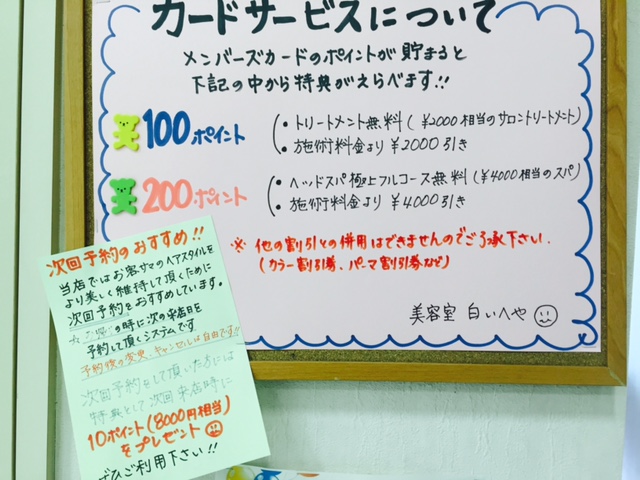 カードサービスについて
メンバーズカードのポイントが貯まると
下記の中から特典がえらべます!!
100ポイント
・トリートメント無料(¥2000相当のサロントリートメント)
・施術料金より¥2000引き
200ポイント
・ヘッドスパ極上フルコース無料(¥4000相当のスパ)
・施術料金より¥4000引き
※他の割引との併用はできませんのでご了承下さい.
(カラー割引券、パーマ割引券など)
美容室 白いへや
次回予約のおすすめ!!
当店ではお客サマのヘアスタイルを
より美しく維持して頂くために
次回予約をおすすめしています。
の時に次の来店日を
予約して頂くシステムです
予約後の変更、キャンセルは自由です!!
次回予約をして頂いた方には
特典として次回来店時に
10ポイント(8000円相当)
をプレゼント
ぜひご利用下さい!!